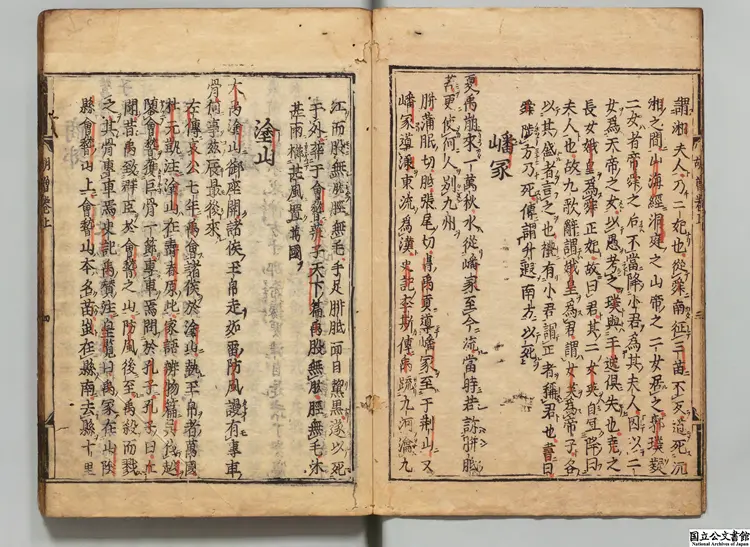 謂湘夫人乃二妃也從舜南征三苗不及道死沉
湘之間山海經洞庭之山帝之二女居之郭璞
二女者帝舜之后不當降小君為其夫人因以二
女為天帝之女以應考之璞與王逸俱失也堯之
長女娥皇為舜正妃故曰君其二女女英自宜降曰
夫人也故九歌辭謂娥皇為君謂女英為帝子各
以其盛者言之也禮有小君謂正者稱君也書曰
舜陟方乃死傳謂升遐南方以死
嶓冢
夏禹崩來一萬秋水從嶓冢至今流當時若訴胼胝
苦更使何人別九州
胼蒲眠切胝張尾切禹貢導嶓冢至于荆山又
嶓冢導漾東流為漢史記李斯傳禹疏九河瀹九
江而股無胈脛無毛手足胼胝面目黧黒遂以死
于外葬于會稽莊子天下篇禹股無胈脛無毛沐
甚雨櫛疾風置萬國
塗山
大禹塗山御座開諸侯玉帛走如雷防風謾有專車
骨何事兹辰最後來
左傳哀公七年禹會諸侯於塗山執玉帛者萬國
杜元凱注塗山在壽春東北家語辨物篇吳伐越
隳會稽獲巨骨一節專車焉問於孔子孔子曰丘
聞昔禹致群臣於會稽之山防風後至禹殺而戮
之其骨專車焉史記禹贊注皇覽曰禹冢在山陰
縣會稽山上會稽山本名苗山在縣南去縣十里
胡曾卷上
四
国立公文書館
National Archives of Japan